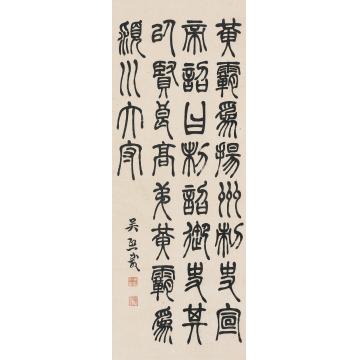 黃霸為揚州刺史宣
帝詔曰制詔御史其
以賢良高弟黃霸為
潁川太守
吳熙載